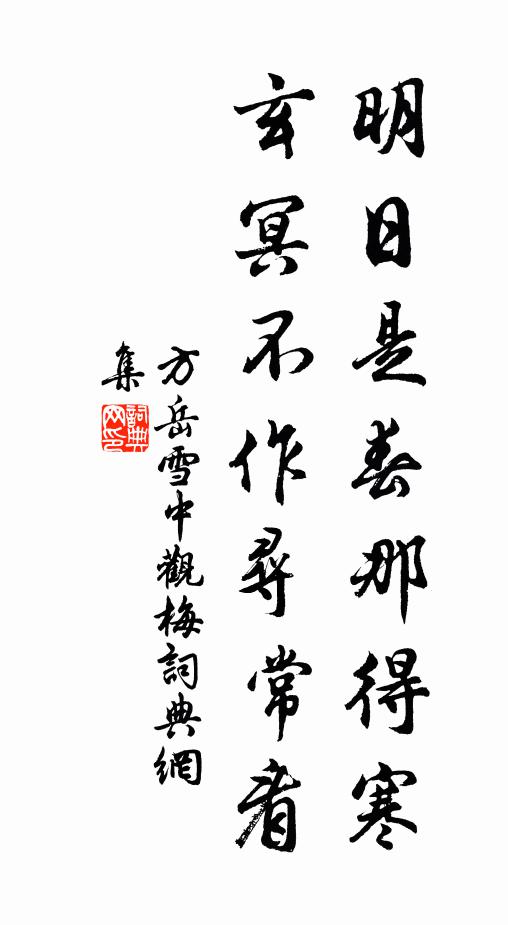 明日是春那得寒
玄冥不作尋常看
方岳雪中觀梅詞典網
集
詞典網印